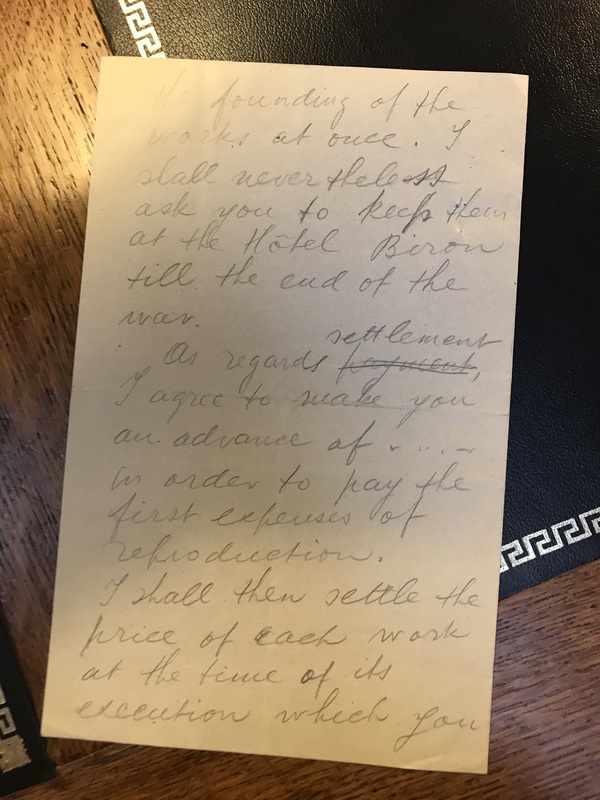 the founding of the
works at once. I
shall nevertheless
ask you to keep them
at the Hôtel Biron
till the end of the
war.
settlement
As regards payment,
I agree to make you
an advance of . . . . –
in order to pay the
first expenses of
reproduction.
I shall then settle the
price of each work
at the time of its
execution which you